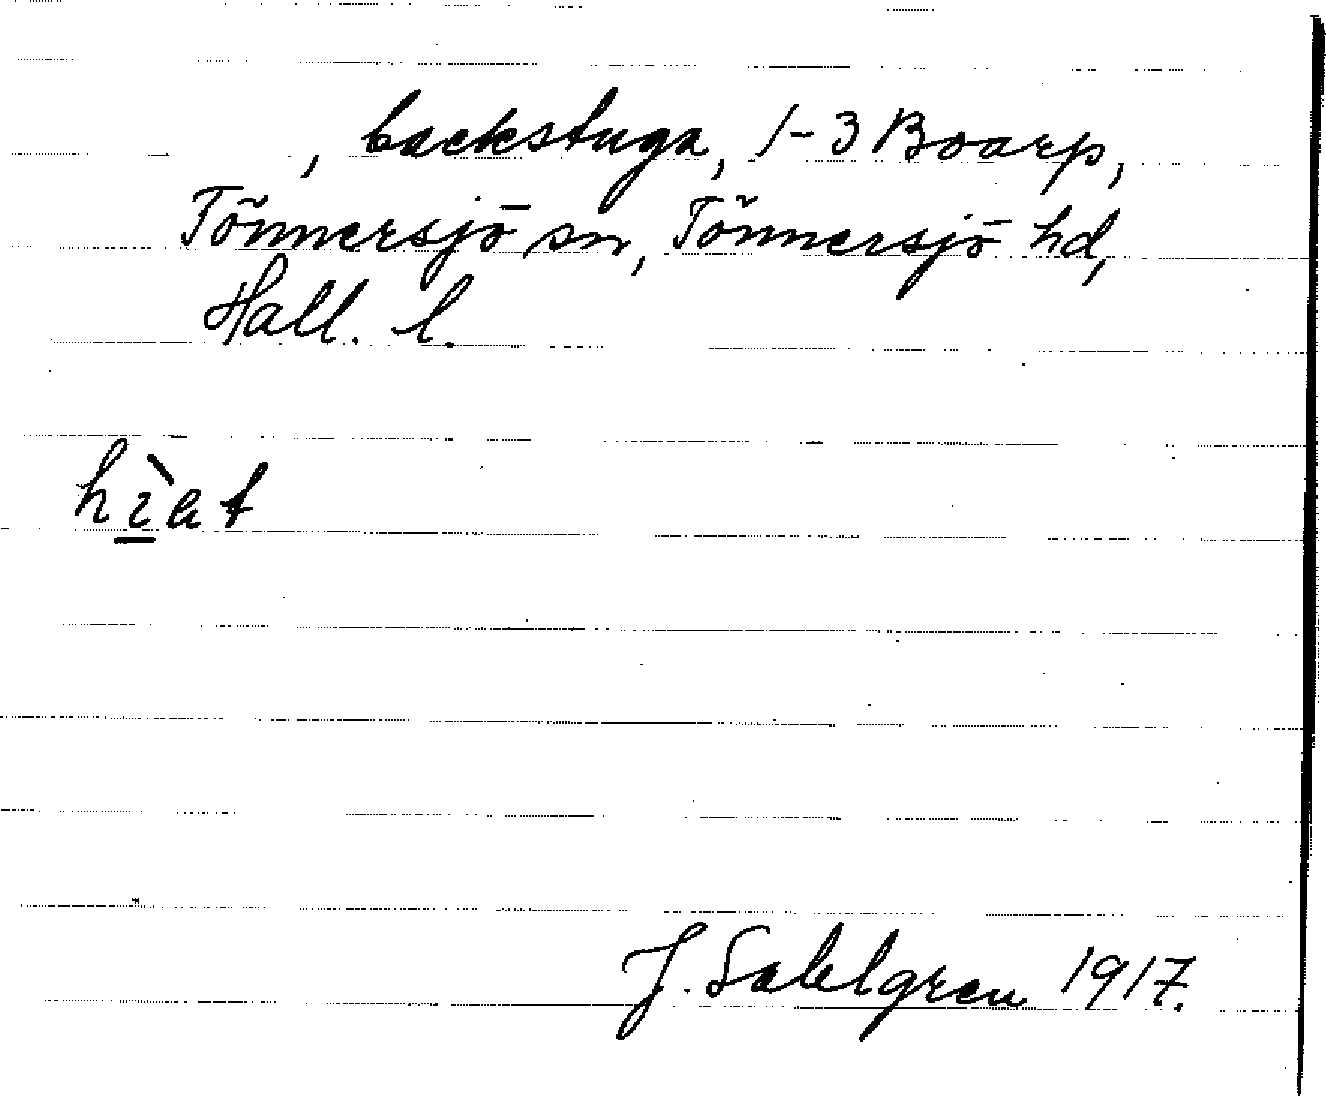 , backstuga, 1-3 Boarp,
Tönnersjö sn, Tönnersjö hd,
Hall. l.
J. Sahlgren 1917.